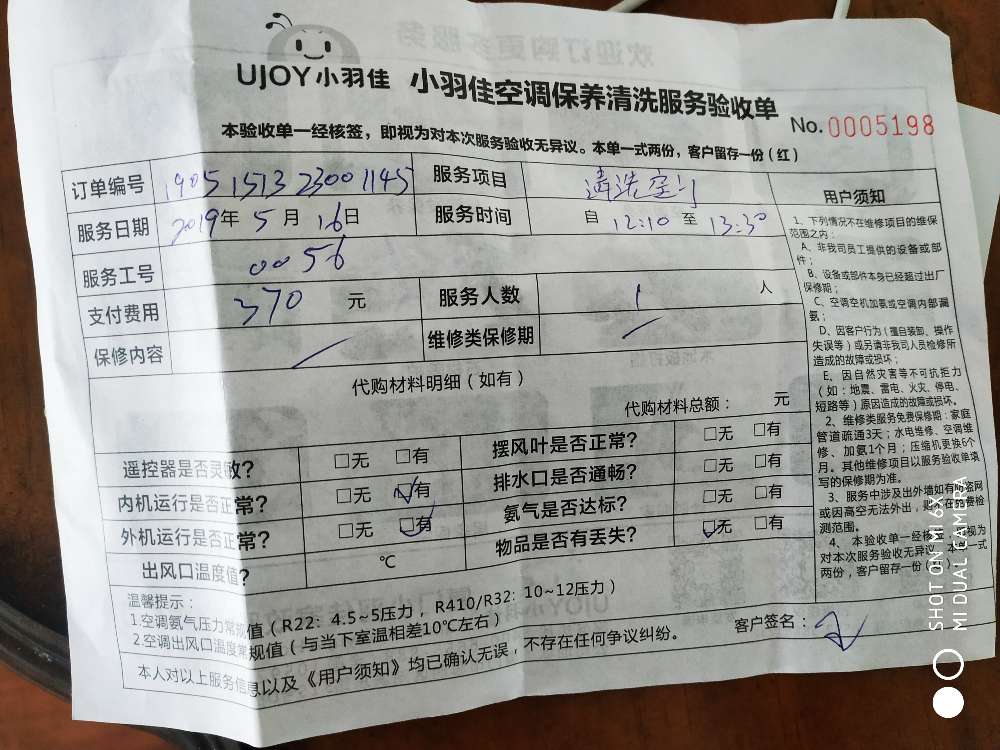 UJOY小羽佳 小羽佳空调保养清洗服务验收单
No. 0005198
本验收单一经核签，即视为对本次服务验收无异议。本单一式两份，客户留存一份（红）
订单编号 1905151323001145 服务项目 清洗空调
服务日期 2019年5月16日 服务时间 自 12:10 至 13:30
服务工号 0056
支付费用 370 元 服务人数 1 人
保修内容 / 维修类保修期 /
代购材料明细（如有）
代购材料总额： 元
遥控器是否灵敏？ □无 □有 摆风叶是否正常？ □无 □有
内机运行是否正常？ □无 ☑有 排水口是否通畅？ □无 □有
外机运行是否正常？ □无 ☑有 氨气是否达标？ □无 □有
出风口温度值？ ℃ 物品是否有丢失？ ☑无 □有
温馨提示：
1.空调氨气压力常规值（R22：4.5~5压力，R410/R32：10~12压力）
2.空调出风口温度常规值（与当下室温相差10℃左右）
本人对以上服务信息以及《用户须知》均已确认无误，不存在任何争议纠纷。
客户签名：
用户须知
1、下列情况不在维修项目的维保
范围之内：
A、非我司员工提供的设备或部
件；
B、设备或部件本身已经超过出厂
保修期；
C、空调空机加氨或空调内部漏
氨；
D、因客户行为（擅自装卸、操作
失误等）或另请非我司人员检修所
造成的故障或损坏；
E、因自然灾害等不可抗拒力
（如：地震、雷电、火灾、停电、
短路等）原因造成的故障或损坏。
2、维修类服务免费保修期：家庭
管道疏通3天；水电维修、空调维
修、加氨1个月；压缩机更换6个
月。其他维修项目以服务验收单填
写的保修期为准。
3、服务中涉及出外墙如有防盗网
或因高空无法外出，则不在免费检
测范围。
4、本验收单一经核签，即视为
对本次服务验收无异议。本单一式
两份，客户留存一份（红）
SHOT ON MI 6X
MI DUAL CAMERA